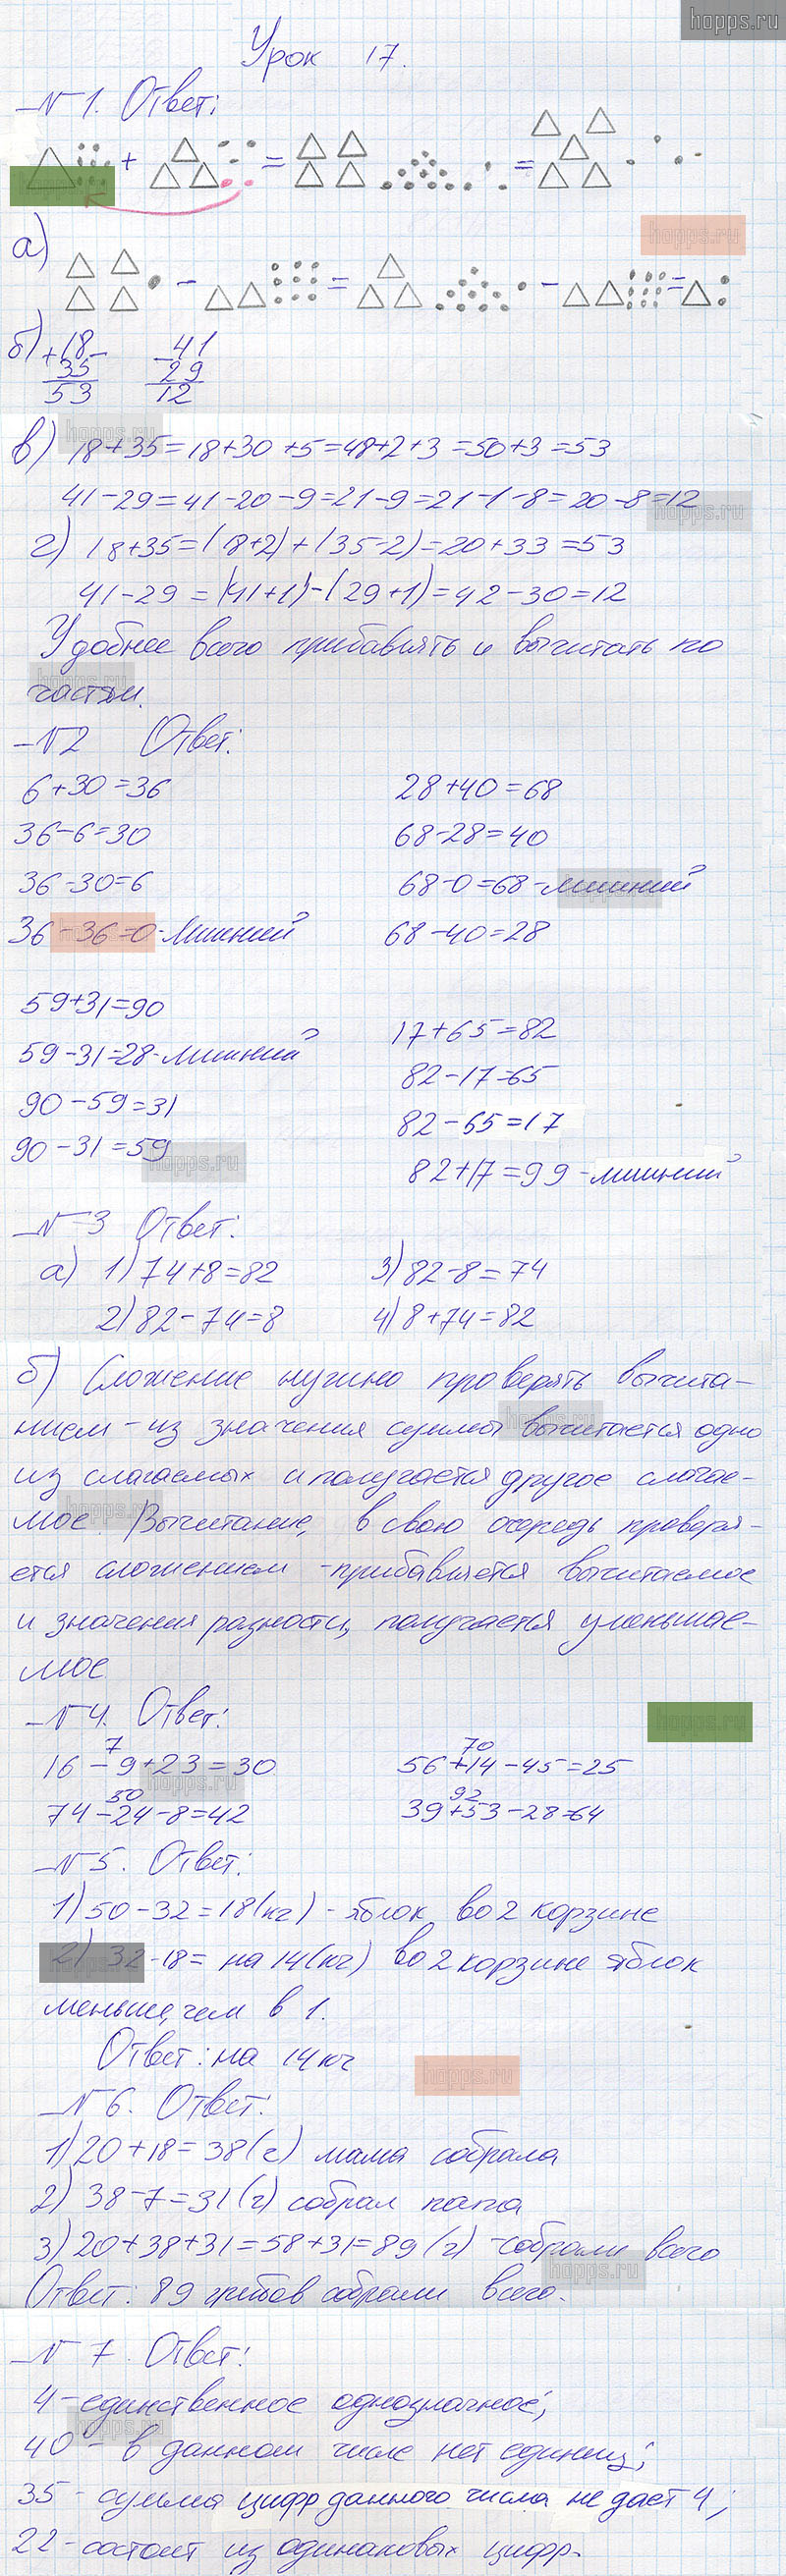 hopps.ru
Урок 17.
№1. Ответ:
+ = =
hopps.ru
а)
- = - =
б) +18 -41
35 29
53 12
hopps.ru
в) 18+35=18+30+5=48+2+3=50+3=53
41-29=41-20-9=21-9=21-1-8=20-8=12
hopps.ru
г) 18+35=(18+2)+(35-2)=20+33=53
41-29=(41+1)-(29+1)=42-30=12
Удобнее всего прибавлять и вычитать по
частям.
hopps.ru
№2 Ответ:
6+30=36 28+40=68
36-6=30 68-28=40
36-30=6 68-0=68-лишний
36-36=0-лишний 68-40=28
59+31=90 17+65=82
59-31=28-лишний 82-17=65
90-59=31 82-65=17
90-31=59 82+17=99-лишний
hopps.ru
№3 Ответ:
а) 1) 74+8=82 3) 82-8=74
2) 82-74=8 4) 8+74=82
б) Сложение нужно проверять вычита-
нием-из значения суммы вычитается одно
из слагаемых и получается другое слагае-
мое. Вычитание, в свою очередь проверя-
ется сложением -прибавляется вычитаемое
и значения разности, получается уменьшае-
мое
hopps.ru
№4. Ответ:
7 70
16-9+23=30 56+14-45=25
50 92
74-24-8=42 39+53-28=64
hopps.ru
№5. Ответ:
1) 50-32=18(кг) - яблок во 2 корзине
2) 32-18= на 14(кг) во 2 корзине яблок
меньше, чем в 1.
Ответ: на 14 кг
hopps.ru
№6. Ответ:
1) 20+18=38(г) мама собрала
2) 38-7=31(г) собрал папа
3) 20+38+31=58+31=89(г) -собрали всего
hopps.ru
Ответ: 89 грибов собрали всего.
№7. Ответ:
4-единственное однозначное;
40 - в данном числе нет единиц;
35 - сумма цифр данного числа не дает 4;
22-состоит из одинаковых цифр.